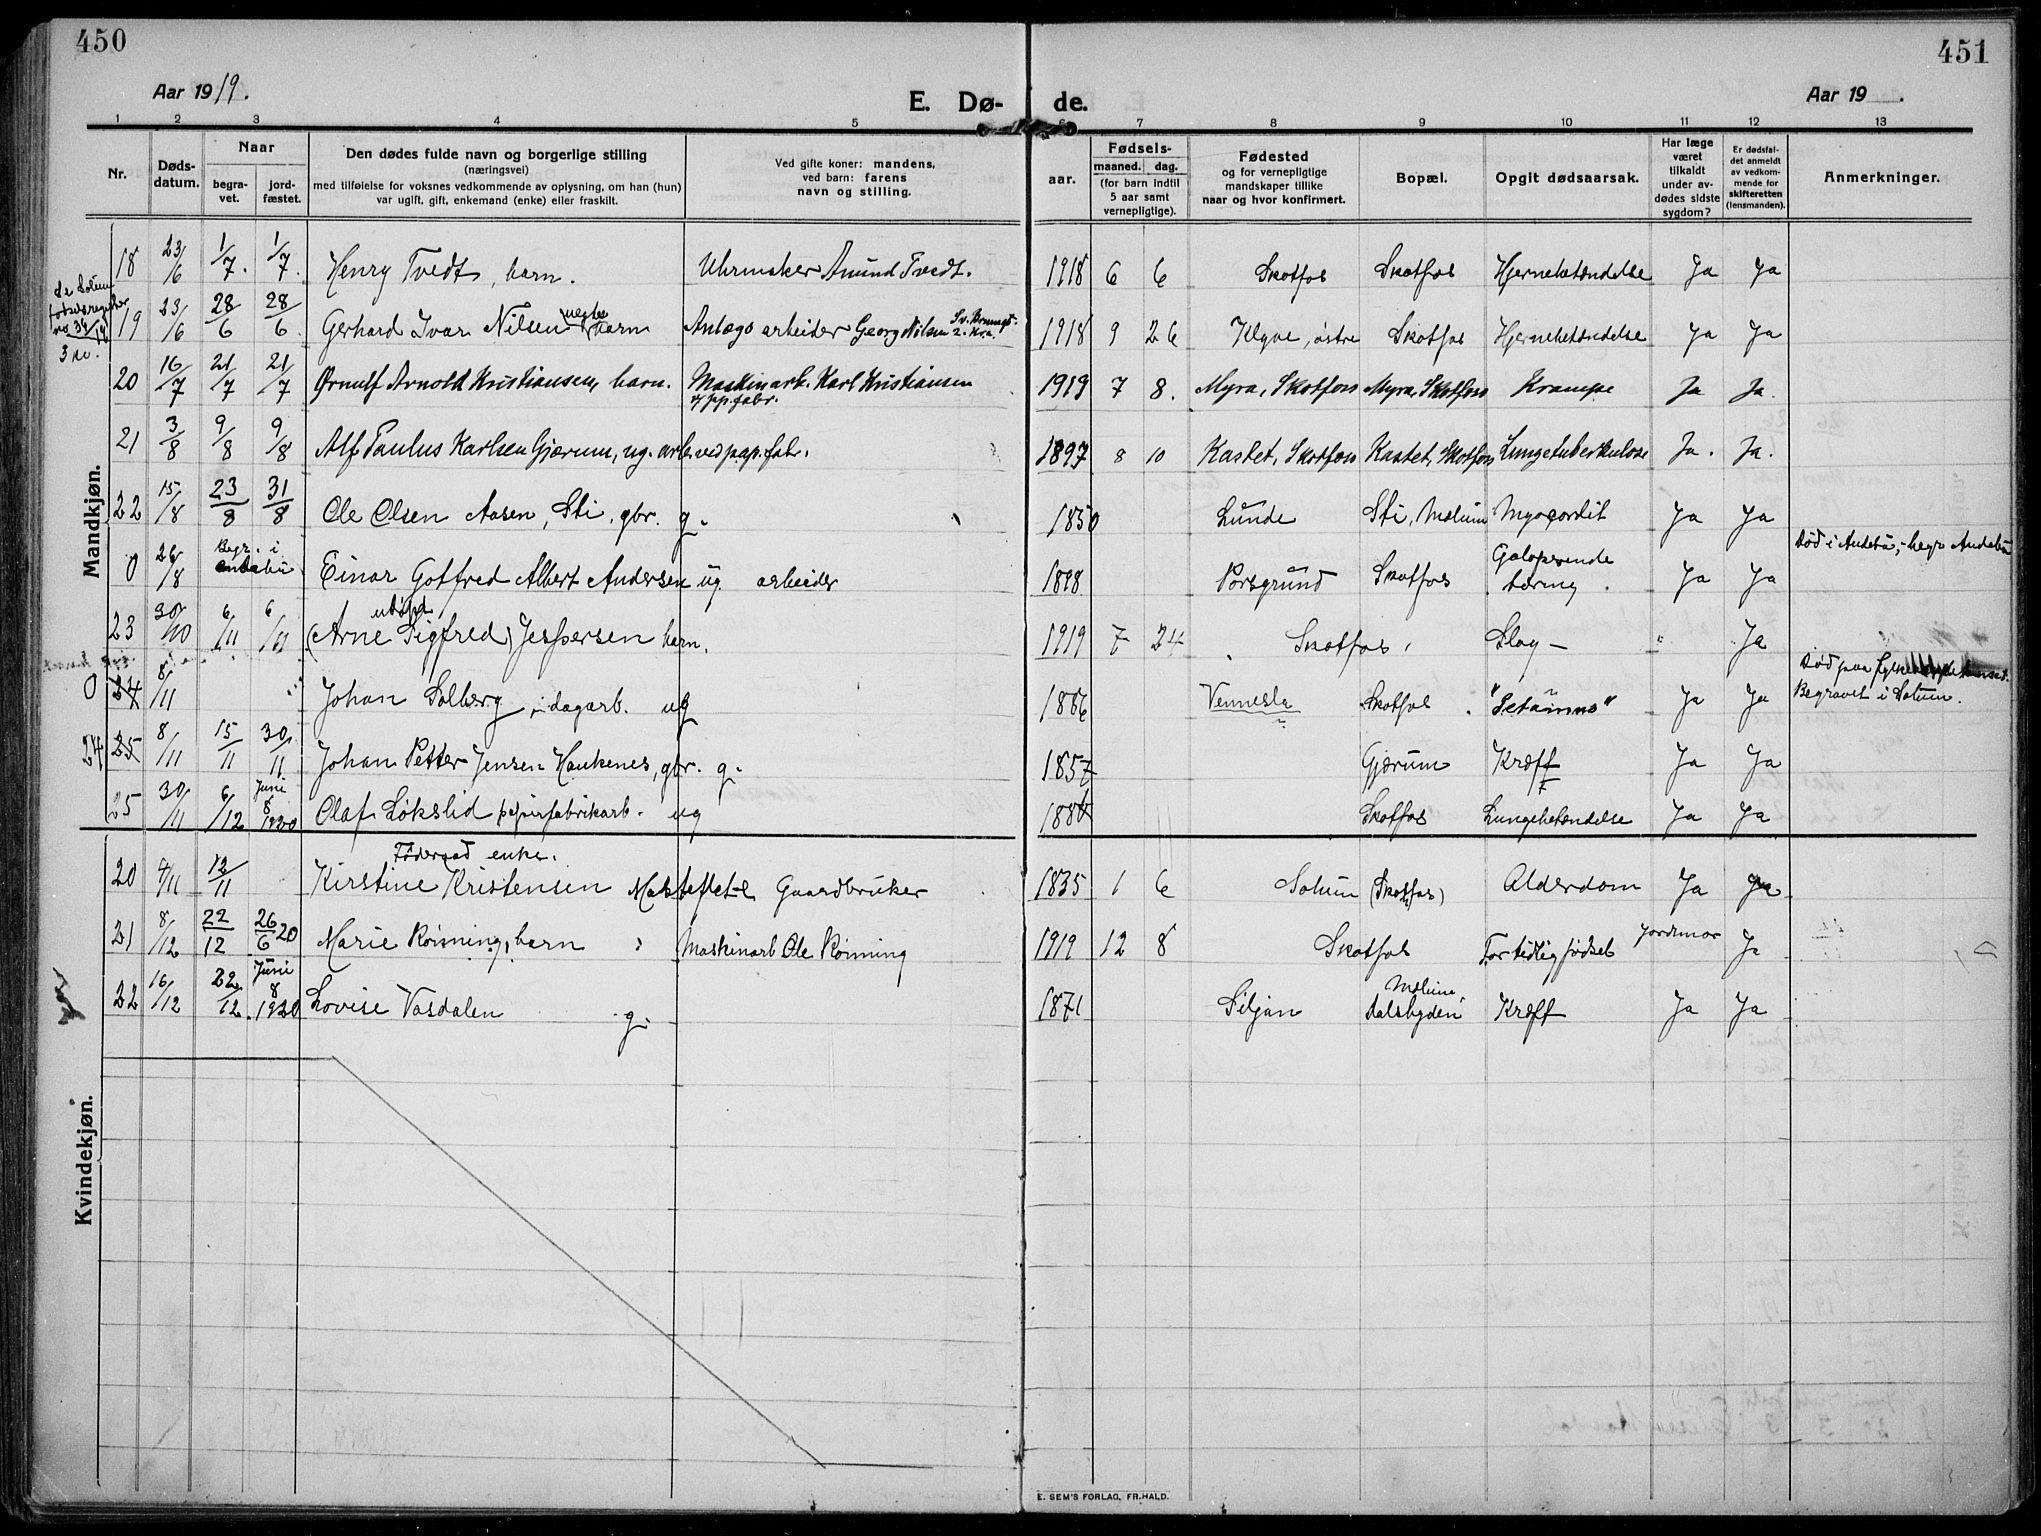 450
451
Aar 1919.
E. Dø-
de.
Aar 19 .
1 2 3 4 5 6 7 8 9 10 11 12 13
Nr.
Døds-
datum.
Naar
begra-
vet.
jord-
fæstet.
Den dødes fulde navn og borgerlige stilling
(næringsvei)
med tilføielse for voksnes vedkommende av oplysning, om han (hun)
var ugift, gift, enkemand (enke) eller fraskilt.
Ved gifte koner: mandens,
ved barn: farens
navn og stilling.
aar.
Fødsels-
maaned. dag.
(for barn indtil
5 aar samt
vernepligtige).
Fødested
og for vernepligtige
mandskaper tillike
naar og hvor konfirmert.
Bopæl.
Opgit dødsaarsak.
Har læge
været
tilkaldt
under av-
dødes sidste
sygdom?
Er dødsfal-
det anmeldt
av vedkom-
mende for
skifteretten
(lensmanden).
Anmerkninger.
Mandkjøn.
18 23/6 1/7. 1/7. Henry Tvedt, barn. Uhrmaker Amund Tvedt. 1918 6 6 Skotfos Skotfos Hjernebetændelse Ja Ja
19 23/6 28/6 28/6 Gerhard Ivar Nilsen uegte barn Anlægs arbeider Georg Nilsen 1918 9 26 Klyve, østre Skotfos Hjernebetændelse Ja Ja
20 16/7 21/7 21/7 Ørnulf Arnold Kristiansen, barn. Maskinarb. Karl Kristiansen 1919 7 8. Myra, Skotfoss Myra, Skotfoss Krampe Ja Ja.
v/ pp.fabr.
21 3/8 9/8 9/8 Alf Paulus Karlsen Gjærum, ug. arb. ved pap.fabr. 1897 8 10 Kastet, Skotfoss Kastet, Skotfoss Lungetuberkulose Ja. Ja.
22 15/8 23/8 31/8 Ole Olsen Aasen, Sti, gbr. g. 1850 Lunde Sti, Melum Myocardit Ja Ja
0 26/8 Begr. i Andebu Einar Gotfred Albert Andersen ug. arbeider 1898 Porsgrund Skotfos Galopperende tæring. Ja Ja Død i Andebu, begr. Andebu
23 30/10 6/11 6/11 (Arne Sigfred) udøpt Jespersen barn. 1919 7 24 Skotfos, Slag — " Ja
0 24 8/11 Johan Solberg, dagarb. ug 1866 Vennesla Skotfos. "Tetanus" Ja Ja Død paa
Begravet i Solum.
24 25 8/11 15/11 30/11 Johan Petter Jensen Haukenes, gbr. g. 1857 Gjærum Kræft Ja Ja
25 30/11 6/12 Juni 8 1920 Olaf Løkslid papirfabrikarb. ug 1886 Skotfos Lungebetændelse Ja Ja
Kvindekjøn.
Føderaad enke.
20 4/11 12/11 Kirstine Kristensen Gaardbruker 1835 1 6 Solum (Skotfos) Alderdom Ja Ja
21 8/12 22/12 26/6 20 Marie Rønning, barn Maskinarb Ole Rønning 1919 12 8 Skotfos For tidlig fødsel Jordmor Ja
22 16/12 22/12. Juni 8 1920 Lovise Vasdalen g. 1871 Siljan Melum, Dalsbygden Kræft Ja Ja
E. SEM'S FORLAG, FR.HALD.